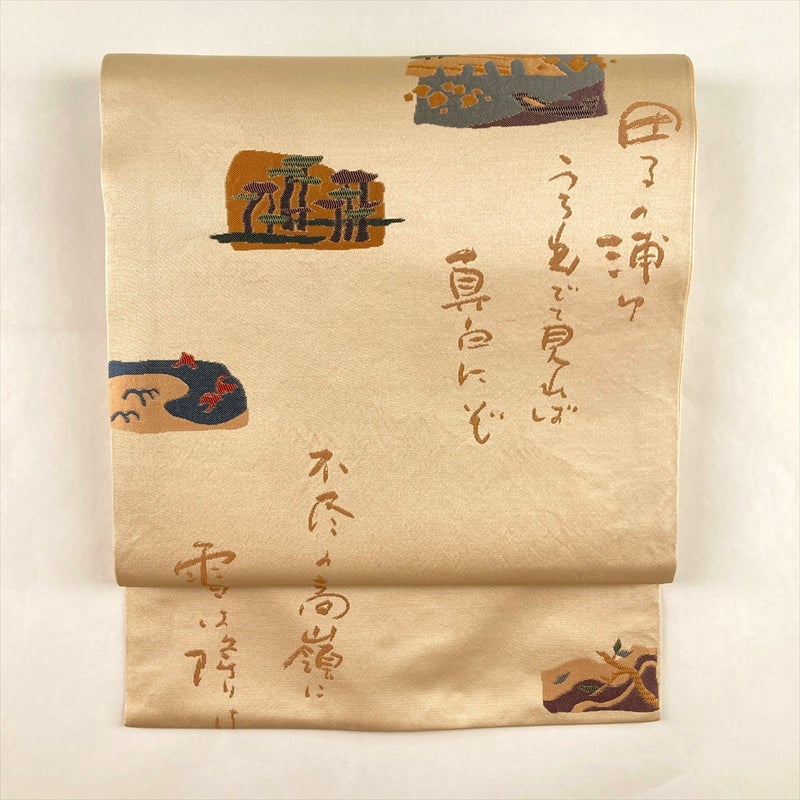 田子の浦ゆ
うち出でて見れば
真白にぞ
不尽の高嶺に
雪は降りけ